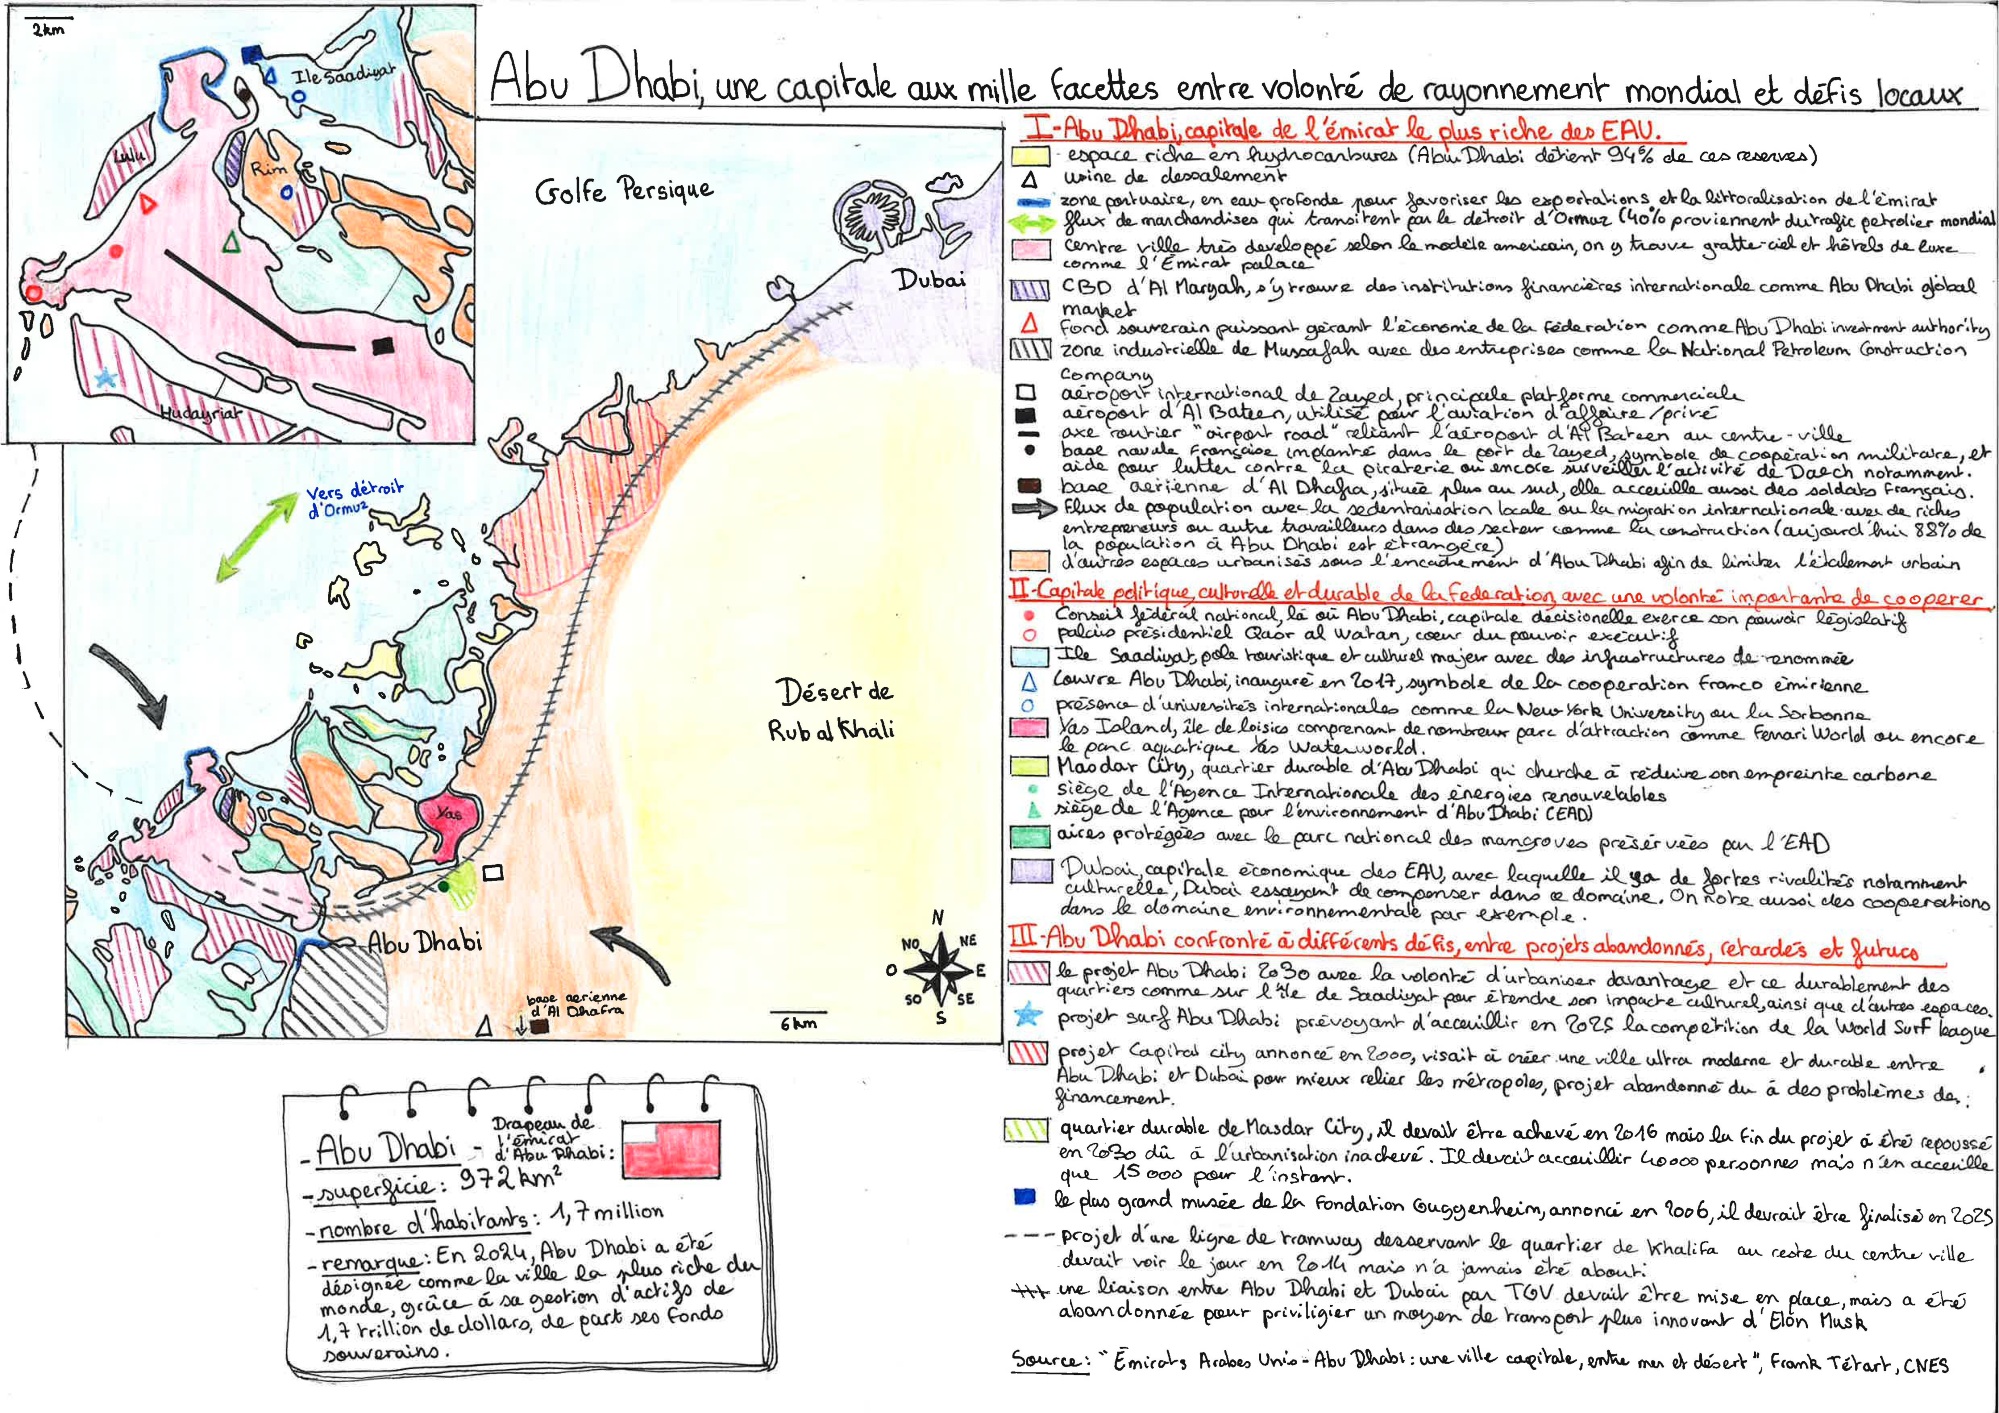 Abu Dhabi, une capitale aux mille facettes entre volonté de rayonnement mondial et défis locaux
2km
Ile Saadiyat
Lulu
Rim
Hudayriat
Golfe Persique
Dubai
Vers détroit
d'Ormuz
Désert de
Rub al Khali
Yas
Abu Dhabi
base aerienne
d'Al Dhafra
6km
N
NO
NE
O
E
SO
SE
S
I-Abu Dhabi, capitale de l'émirat le plus riche des EAU.
espace riche en hydrocarbures (Abu Dhabi détient 94% de ces reserves)
usine de dessalement
zone portuaire, en eau profonde pour favoriser les exportations, et la littoralisation de l'émirat
flux de marchandises qui transitent par le détroit d'Ormuz (40% proviennent du trafic petrolier mondial
centre ville très developpé selon le modèle americain, on y trouve gratte-ciel et hôtels de luxe
comme l'Emirat palace
CBD d'Al Maryah, s'y trouve des institutions financières internationale comme Abu Dhabi global
market
Fond souverain puissant gérant l'économie de la Féderation comme Abu Dhabi investment authority
zone industrielle de Mussafah avec des entreprises comme la National Petroleum Construction
Company
aéroport international de Zayed, principale platforme commerciale
aéroport d'Al Bateen, utilisé pour l'aviation d'affaire/privé
axe routier "airport road" reliant l'aéroport d'Al Bateen au centre-ville
base navale Française implanté dans le port de Zayed, symbole de coopération militaire, et
aide pour lutter contre la piraterie ou encore surveiller l'activité de Daech notamment.
base aerienne d'Al Dhafra, située plus au sud, elle acceuille aussi des soldats Français.
Flux de population avec la sedentarisation locale ou la migration internationale avec de riches
entrepreneurs ou autre travailleurs dans des secteur comme la construction (aujourd'hui 88% de
la population à Abu Dhabi est étrangère)
d'autres espaces urbanisés sous l'encadrement d'Abu Dhabi afin de limiter l'étalement urbain
II-Capitale politique, culturelle et durable de la Federation, avec une volonté importante de cooperer
Conseil fédéral national, là où Abu Dhabi, capitale décisionelle exerce son pouvoir législatif
palais présidentiel Qasr al Watan, coeur du pouvoir exécutif
Ile Saadiyat, pole touristique et culturel majeur avec des infrastructures de renommée
Louvre Abu Dhabi, inauguré en 2017, symbole de la cooperation Franco émirienne
présence d'universités internationales comme la New-York University ou la Sorbonne
Yas Island, île de loisirs comprenant de nombreux parc d'attraction comme Ferrari World ou encore
le parc aquatique Yas Waterworld.
Masdar City, quartier durable d'Abu Dhabi qui cherche à réduire son empreinte carbone
siège de l'Agence Internationale des énergies renouvelables
siège de l'Agence pour l'environnement d'Abu Dhabi (EAD)
aires protégées avec le parc national des mangroves préservées par l'EAD
Dubai, capitale économique des EAU, avec laquelle il y a de fortes rivalités notamment
culturelle, Dubai essayant de compenser dans ce domaine. On note aussi des cooperations
dans le domaine environnementale par exemple.
III-Abu Dhabi confronté à différents défis, entre projets abandonnés, retardés et futurs
le projet Abu Dhabi 2030 avec la volonté d'urbaniser davantage et ce durablement des
quartiers comme sur l'île de Saadiyat pour étendre son impacte culturel, ainsi que d'autres espaces.
projet surf Abu Dhabi prévoyant d'acceuillir en 2025 la competition de la World Surf league
projet Capital city annoncé en 2000, visait à créer une ville ultra moderne et durable entre
Abu Dhabi et Dubai pour mieux relier les métropoles, projet abandonné du à des problèmes de
financement.
quartier durable de Masdar City, il devait être achevé en 2016 mais la fin du projet à été repoussé
en 2030 dû à l'urbanisation inachevé. Il devait acceuillir 40000 personnes mais n'en acceuille
que 15000 pour l'instant.
le plus grand musée de la Fondation Guggenheim, annoncé en 2006, il devrait être finalisé en 2025
projet d'une ligne de tramway desservant le quartier de Khalifa au reste du centre ville
devait voir le jour en 2014 mais n'a jamais été abouti.
une liaison entre Abu Dhabi et Dubai par TGV devait être mise en place, mais a été
abandonnée pour priviligier un moyen de transport plus innovant d'Elon Musk
Source: "Émirats Arabes Unis - Abu Dhabi: une ville capitale, entre mer et désert", Frank Tétart, CNES
- Abu Dhabi - Drapeau de
l'émirat
d'Abu Dhabi:
- superficie: 972 km²
- nombre d'habitants: 1,7 million
- remarque: En 2024, Abu Dhabi a été
désignée comme la ville la plus riche du
monde, grâce à sa gestion d'actifs de
1,7 trillion de dollars, de part ses fonds
souverains.